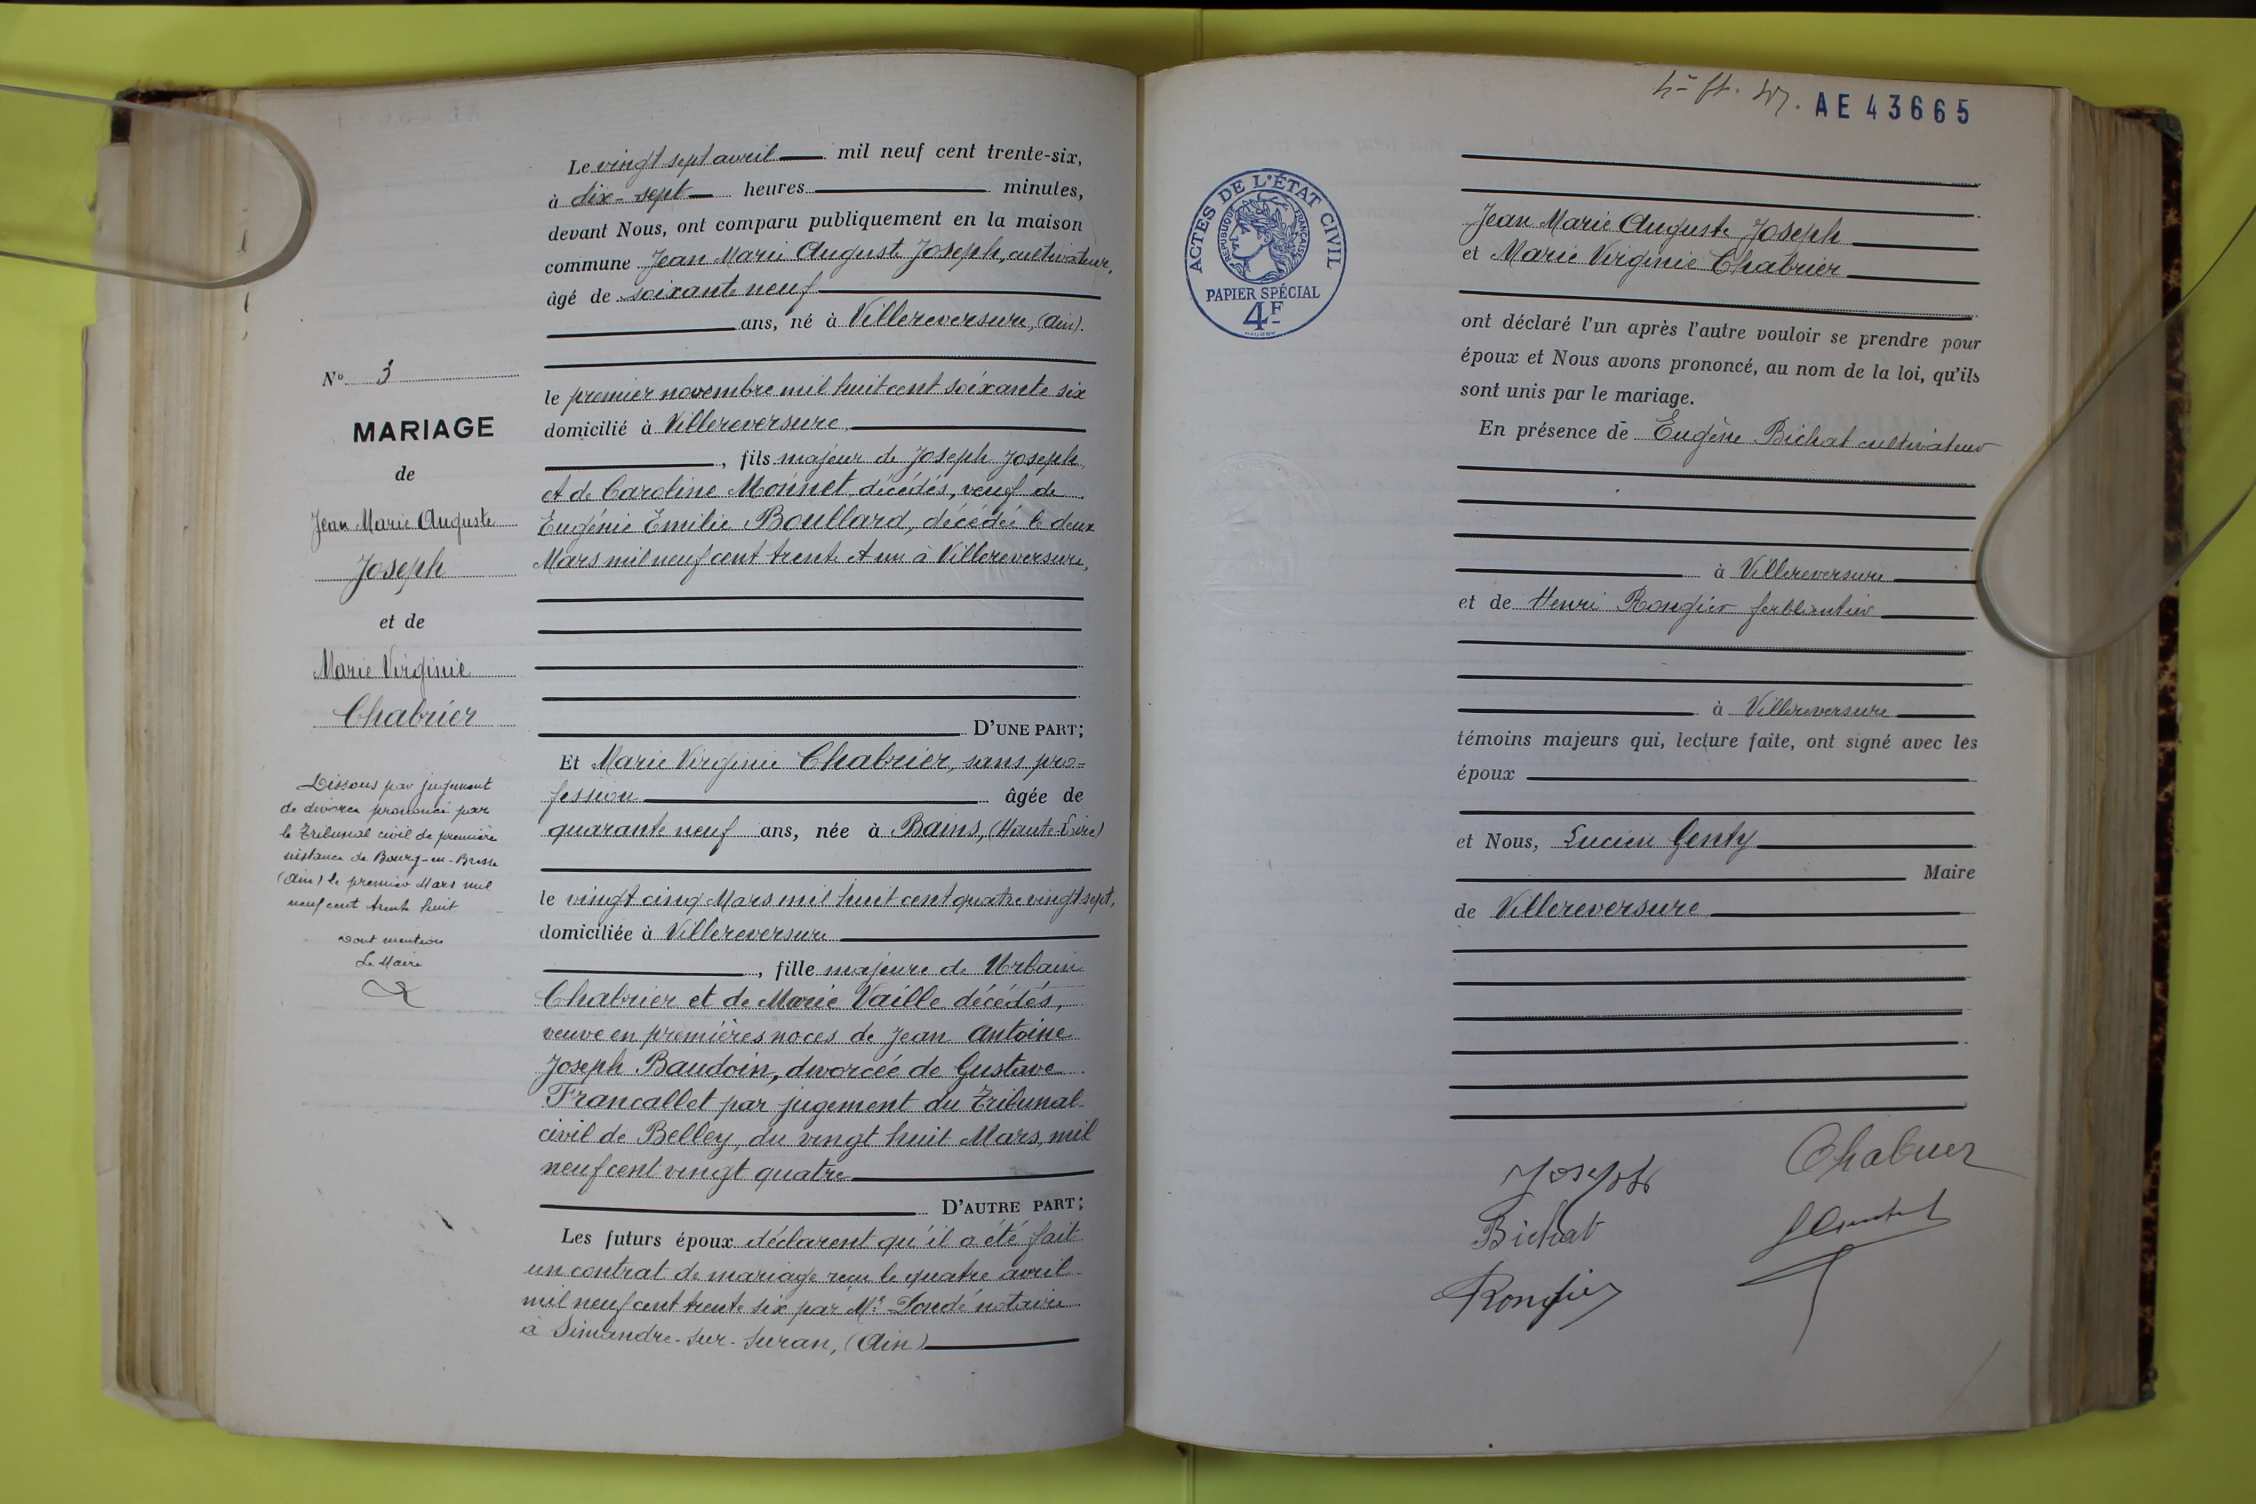 Le vingt sept avril mil neuf cent trente-six,
à dix-sept heures minutes,
devant Nous, ont comparu publiquement en la maison
commune Jean Marie Auguste Joseph, cultivateur,
âgé de soixante neuf
ans, né à Villereversure, (Ain).
le premier novembre mil huit cent soixante six
domicilié à Villereversure
, fils majeur de Joseph Joseph
et de Caroline Monnet, décédés, veuf de
Eugénie Emilie Boullard, décédée le deux
Mars mil neuf cent trente et un à Villereversure,
D'UNE PART;
Et Marie Virginie Chabrier, sans pro=
fession âgée de
quarante neuf ans, née à Bains, (Haute-Loire)
le vingt cinq Mars mil huit cent quatre vingt sept,
domiciliée à Villereversure
, fille majeure de Urbain
Chabrier et de Marie Vaille décédés,
veuve en premières noces de Jean Antoine
Joseph Baudoin, divorcée de Gustave
Francallet par jugement du Tribunal
civil de Belley, du vingt huit Mars, mil
neuf cent vingt quatre
D'AUTRE PART;
Les futurs époux déclarent qu'il a été fait
un contrat de mariage reçu le quatre avril
mil neuf cent trente six par Me Doudé notaire
à Simandre-sur-Suran, (Ain)
No 3
MARIAGE
de
Jean Marie Auguste
Joseph
et de
Marie Virginie
Chabrier
Dissous par jugement
de divorce prononcé par
le Tribunal civil de première
instance de Bourg-en-Bresse
(Ain) le premier Mars mil
neuf cent trente huit
Dont mention
Le Maire
AE 43665
ACTES DE L'ÉTAT CIVIL
RÉPUBLIQUE FRANÇAISE
PAPIER SPÉCIAL
4F
Jean Marie Auguste Joseph
et Marie Virginie Chabrier
ont déclaré l'un après l'autre vouloir se prendre pour
époux et Nous avons prononcé, au nom de la loi, qu'ils
sont unis par le mariage.
En présence de Eugène Bichat cultivateur
à Villereversure
et de Henri Rongier ferblantier
à Villereversure
témoins majeurs qui, lecture faite, ont signé avec les
époux
et Nous, Lucien Genty
Maire
de Villereversure
Joseph
Chabrier
Bichat
Rongier